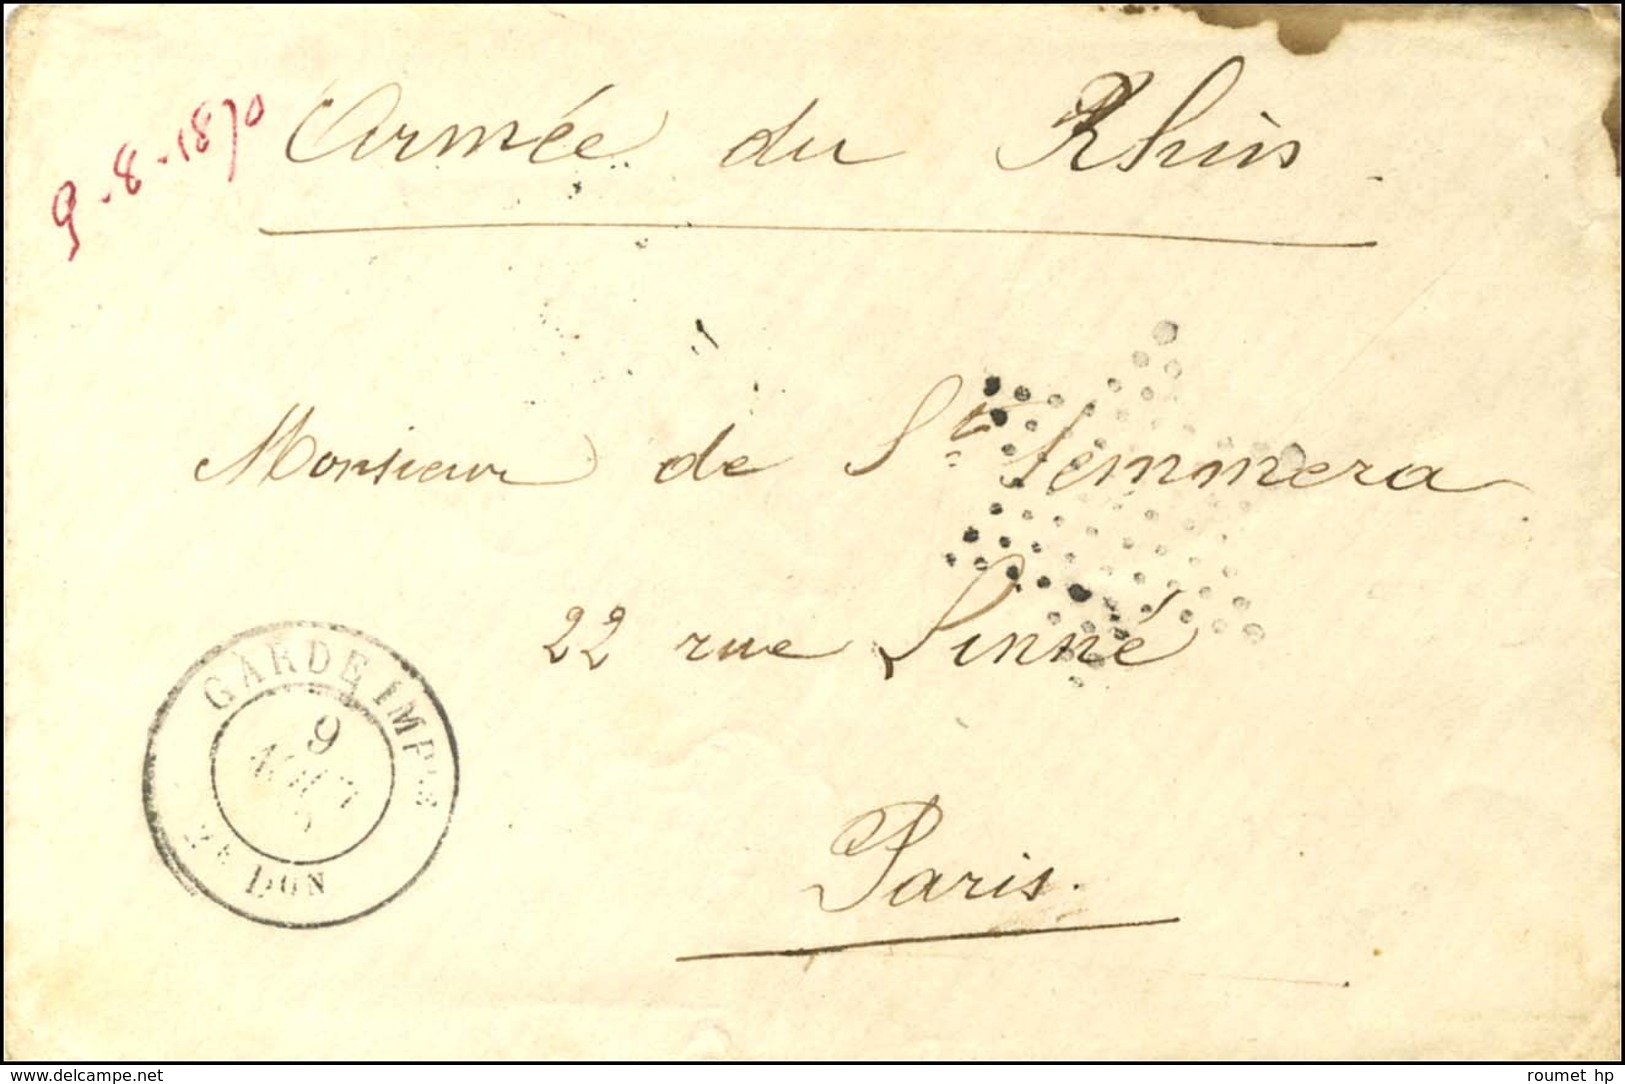 9-8-1870
Armée du Rhin
Monsieur de St Jemmera
22 rue Linné
Paris.
GARDE IMPLE
9
AOUT
2E DON
www.delcampe.net
roumet hp